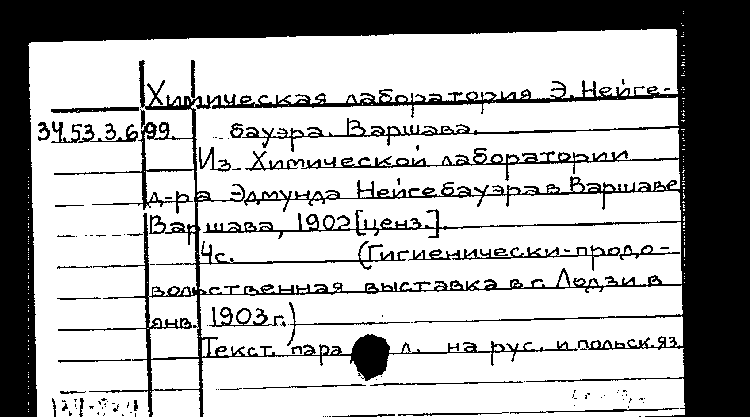 Химическая лаборатория Э. Нейге-
34.53.3.6/99. бауэра. Варшава.
Из Химической лаборатории
д-ра Эдмунда Нейгебауэра в Варшаве
Варшава, 1902 [ценз.].
4с. (Гигиенически-продо-
вольственная выставка в г. Лодзи в
янв. 1903 г.)
Текст. пара л. на рус. и польск. яз.